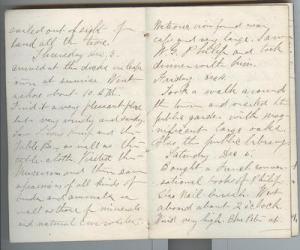 sailed out of sight of
land all the time.
Thursday Dec 3.
arrived at the docks in Cape
town at sunrise Went
ashore about 10 A.M.
Find it a very pleasant place
but very windy and sandy.
Saw Table
Bay, as well as the
table cloth Visited the
Museum and there saw
specimens of all kinds of
birds and animals as
well as those of minerals
and natural curiosities.
very large. Saw
W. G. P and took
dinner with him.
Friday Dec 4.
Took a walk around
the town and visited the
public garden with mag
nificent large oaks
Also the public library
Saturday Dec 5.
Bought a French conver
sational book of Philip
Went
aboard about 2 o'clock
Wind very high.